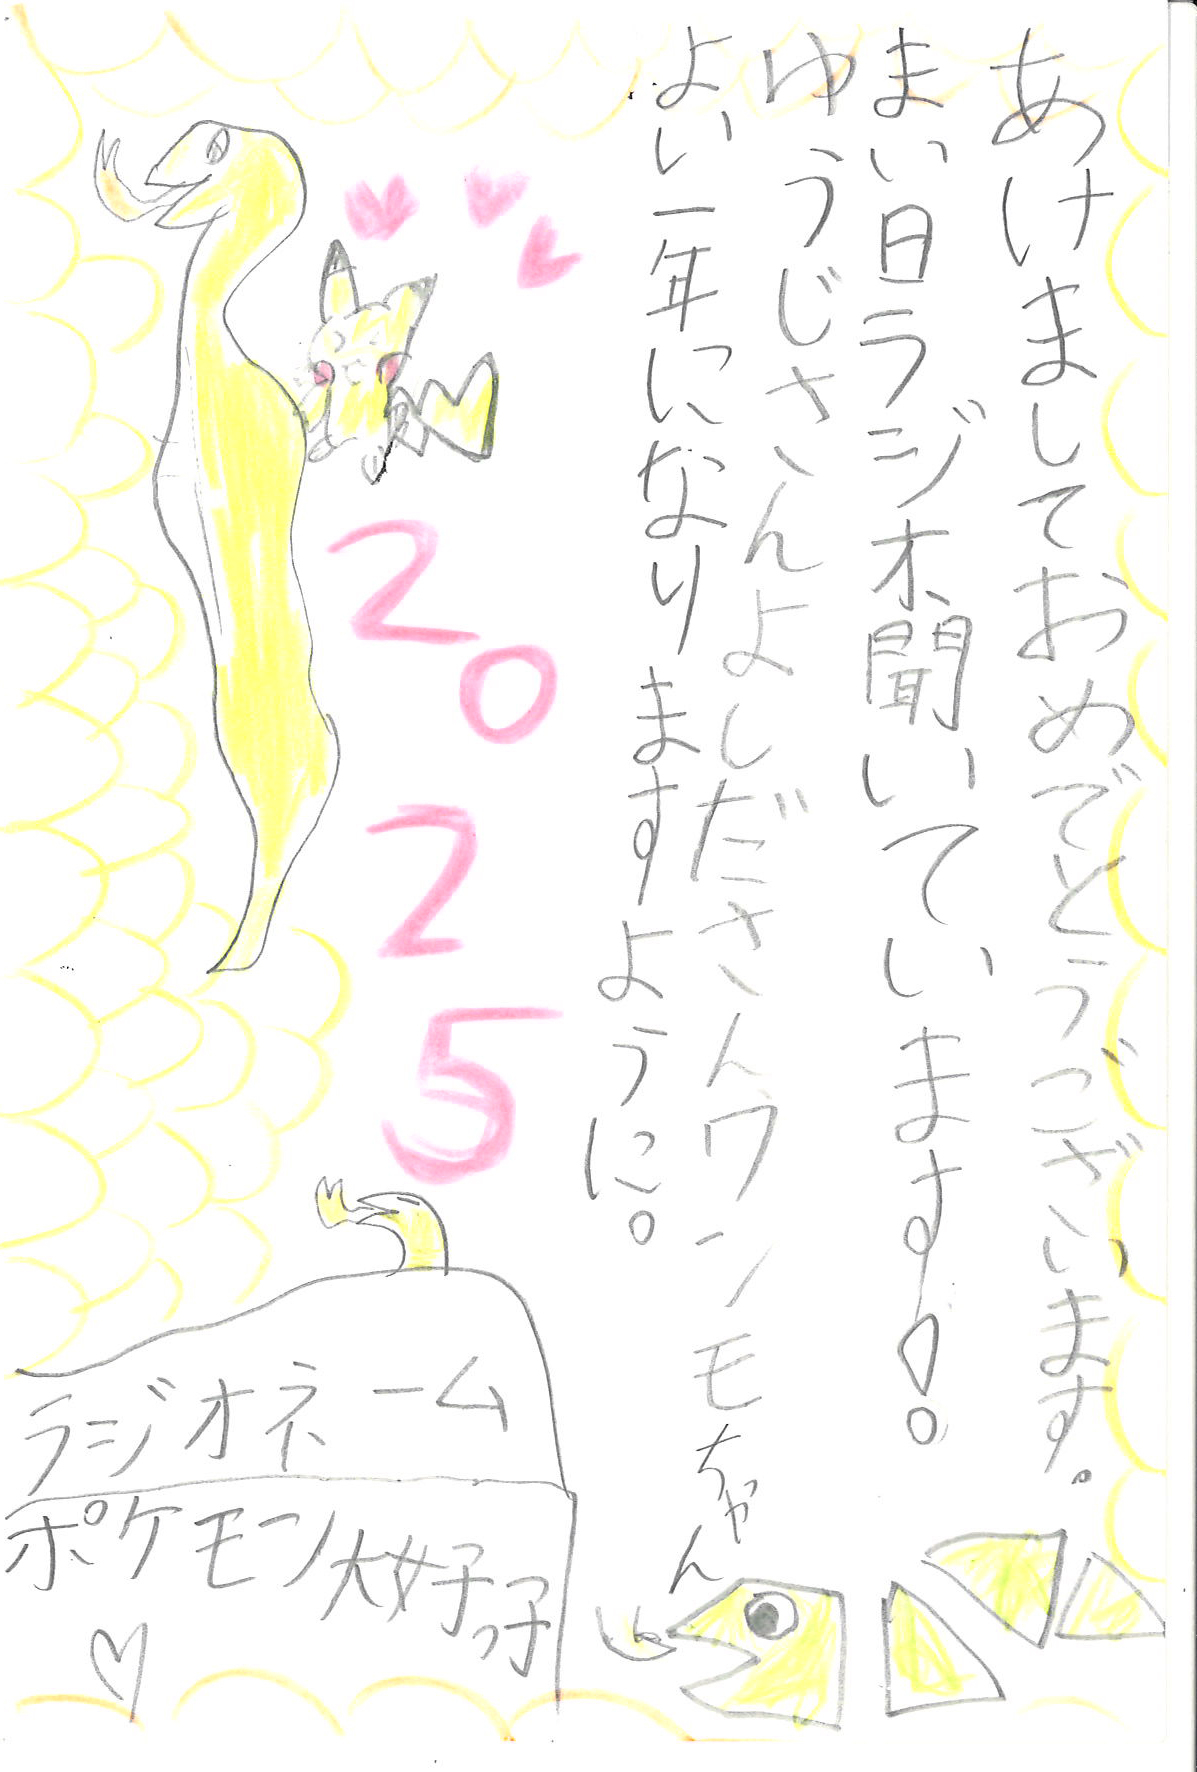 あけましておめでとうございます。
まい日ラジオ聞いています!。
ゆうじさんよしださんワンモちゃん
よい一年になりますように。
2025
ラジオネーム
ポケモン大好きっ子